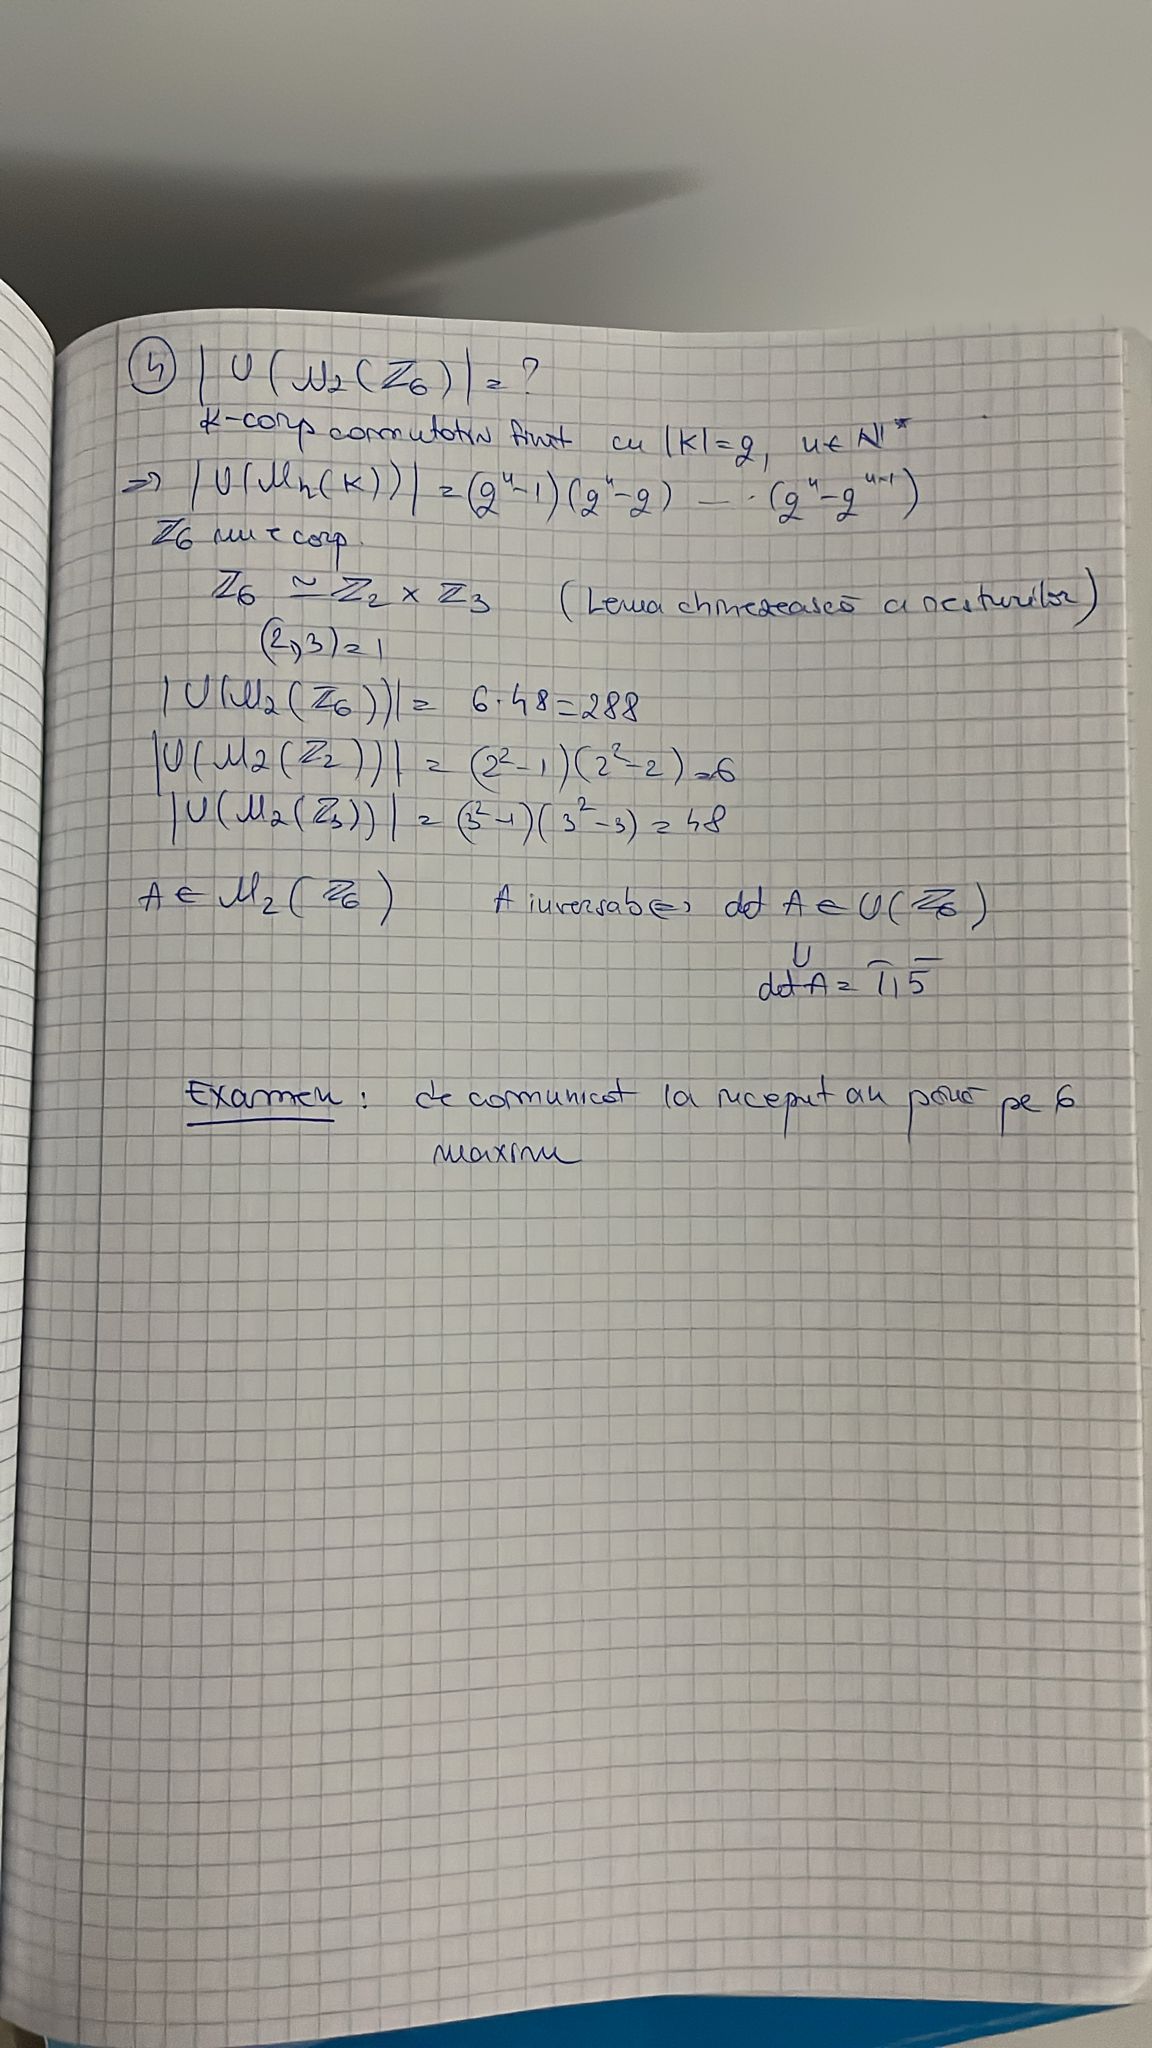 ④ |U(M₂(ℤ₆)| = ?
K-corp comutativ finit cu |K|=q, n∈ℕ*
⇒ |U(Mₙ(K))| = (qⁿ-1)(qⁿ-q) ... (qⁿ-qⁿ⁻¹)
ℤ₆ nu e corp.
ℤ₆ ≃ ℤ₂ × ℤ₃ (Lema chinezească a resturilor)
(2,3)=1
|U(M₂(ℤ₆))| = 6·48=288
|U(M₂(ℤ₂))| = (2²-1)(2²-2)=6
|U(M₂(ℤ₃))| = (3²-1)(3²-3)=48
A∈M₂(ℤ₆) A inversab⇔ det A∈U(ℤ₆)
⇓
det A = 1̄, 5̄
Examen: de comunicat la început an până pe 6
maxim